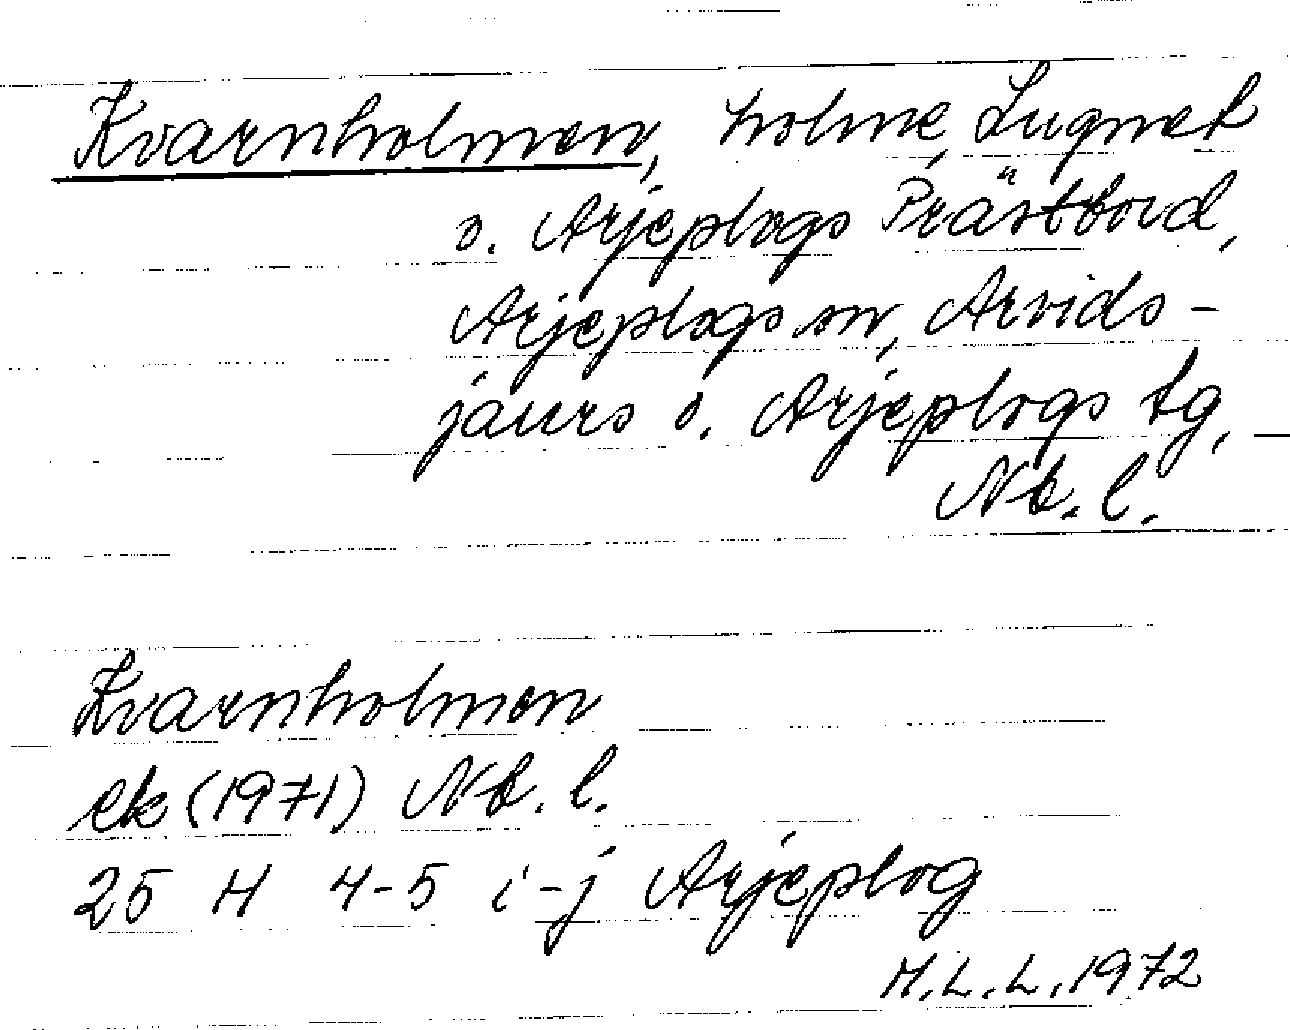 Kvarnholmen, holme, Lugnet
o. Arjeplogs Prästbord,
Arjeplogs sn, Arvids-
jaurs o. Arjeplogs tg,
Nb. l.
Kvarnholmen
ek (1971) Nb. l.
25 H 4-5 i-j Arjeplog
H.L.L. 1972